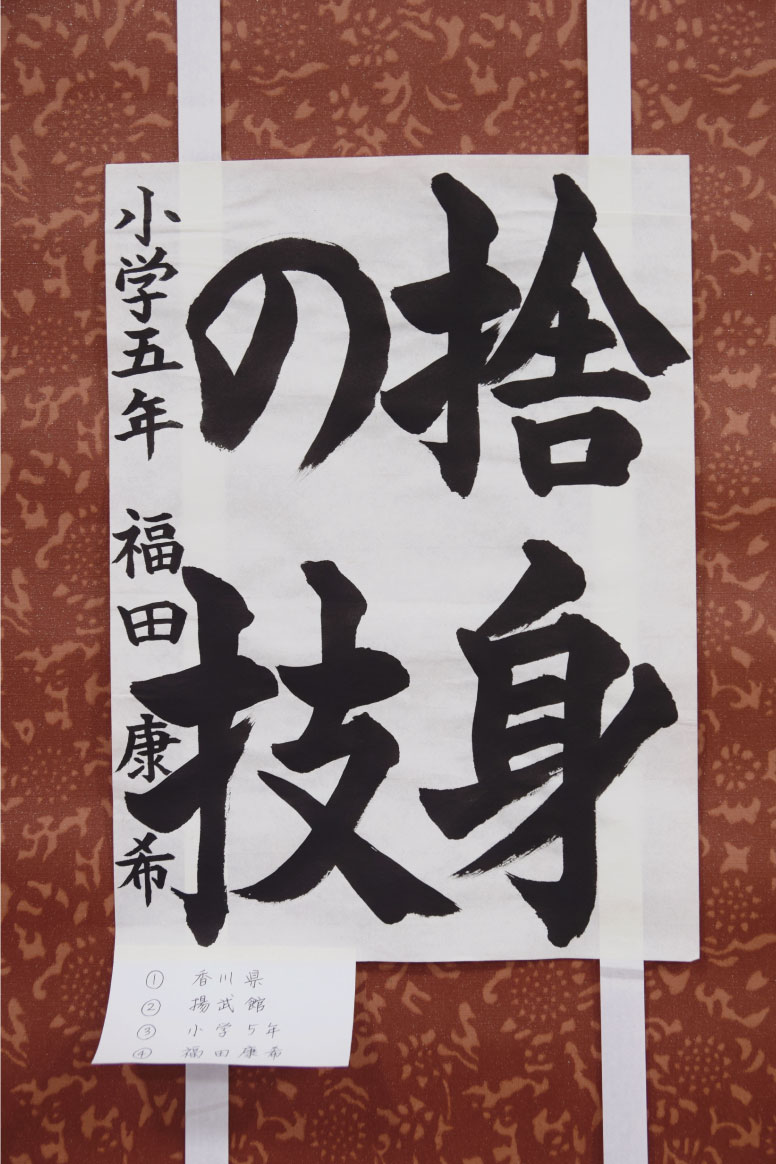 捨身
の技
小学五年 福田康希
① 香川県
② 揚武館
③ 小学5年
④ 福田康希